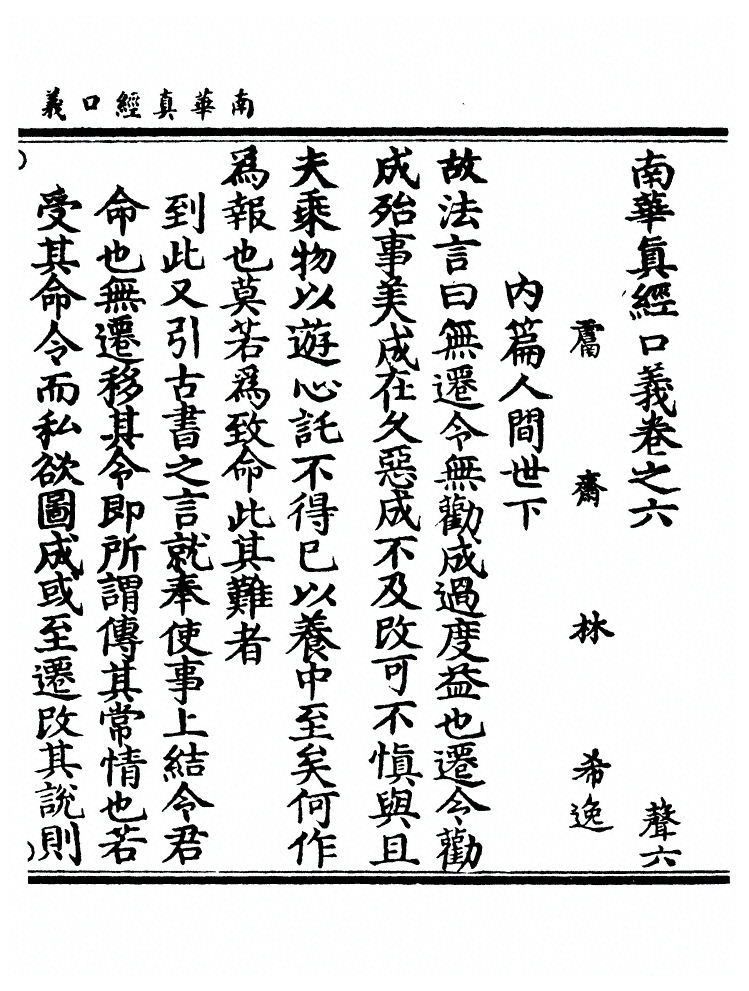 南華真經口義
南華真經口義卷之六 聲六
鬳齋林希逸
內篇人間世下
故法言曰無遷令無勸成過度益也遷令勸
成殆事美成在久惡成不及改可不慎與且
夫乘物以遊心託不得已以養中至矣何作
為報也莫若為致命此其難者
到此又引古書之言就奉使事上結令君
命也無遷移其令即所謂傳其常情也若
受其命令而私欲圖成或至遷改其說則